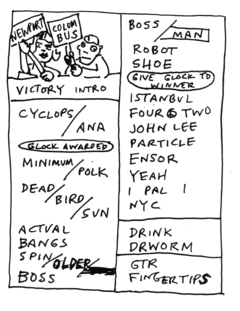 NEWPORT
COLUM
BUS
VICTORY INTRO
CYCLOPS/
ANA
GLOCK AWARDED
MINIMUM/
POLK
DEAD/
BIRD/
SUN
ACTUAL
BANGS
SPIN/OLDER/
BOSS
BOSS/
MAN
ROBOT
SHOE
GIVE GLOCK TO
WINNER
ISTANBUL
FOUR TWO
JOHN LEE
PARTICLE
ENSOR
YEAH
1 PAL 1
NYC
DRINK
DRWORM
GTR
FINGERTIPS